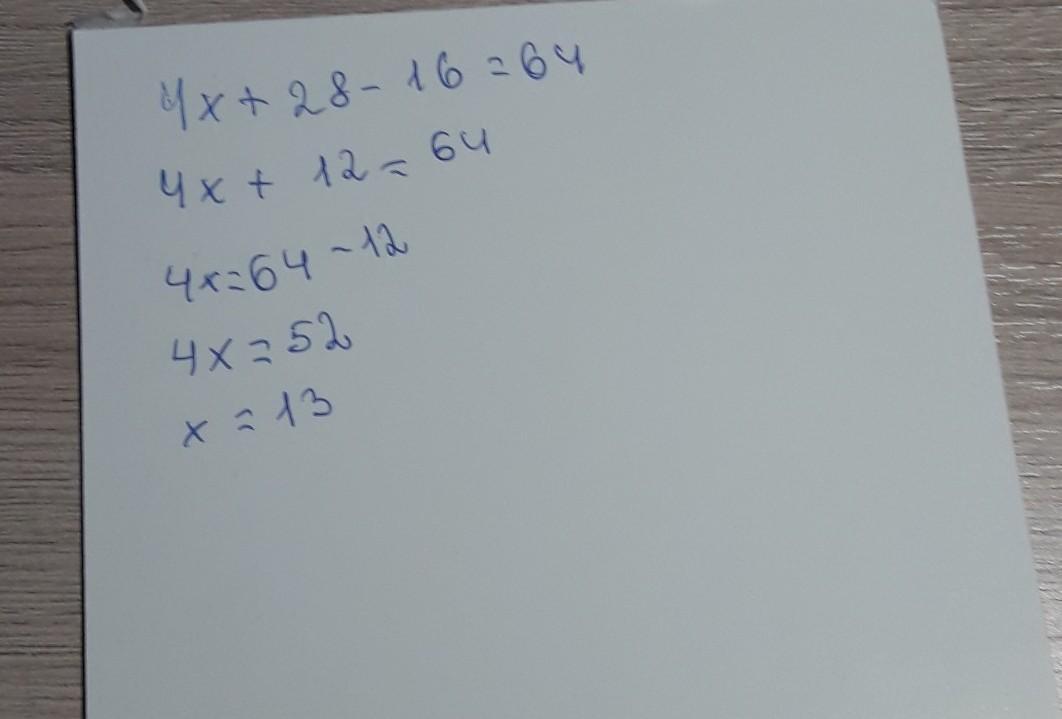 4x + 28 - 16 = 64
4x + 12 = 64
4x = 64 - 12
4x = 52
x = 13